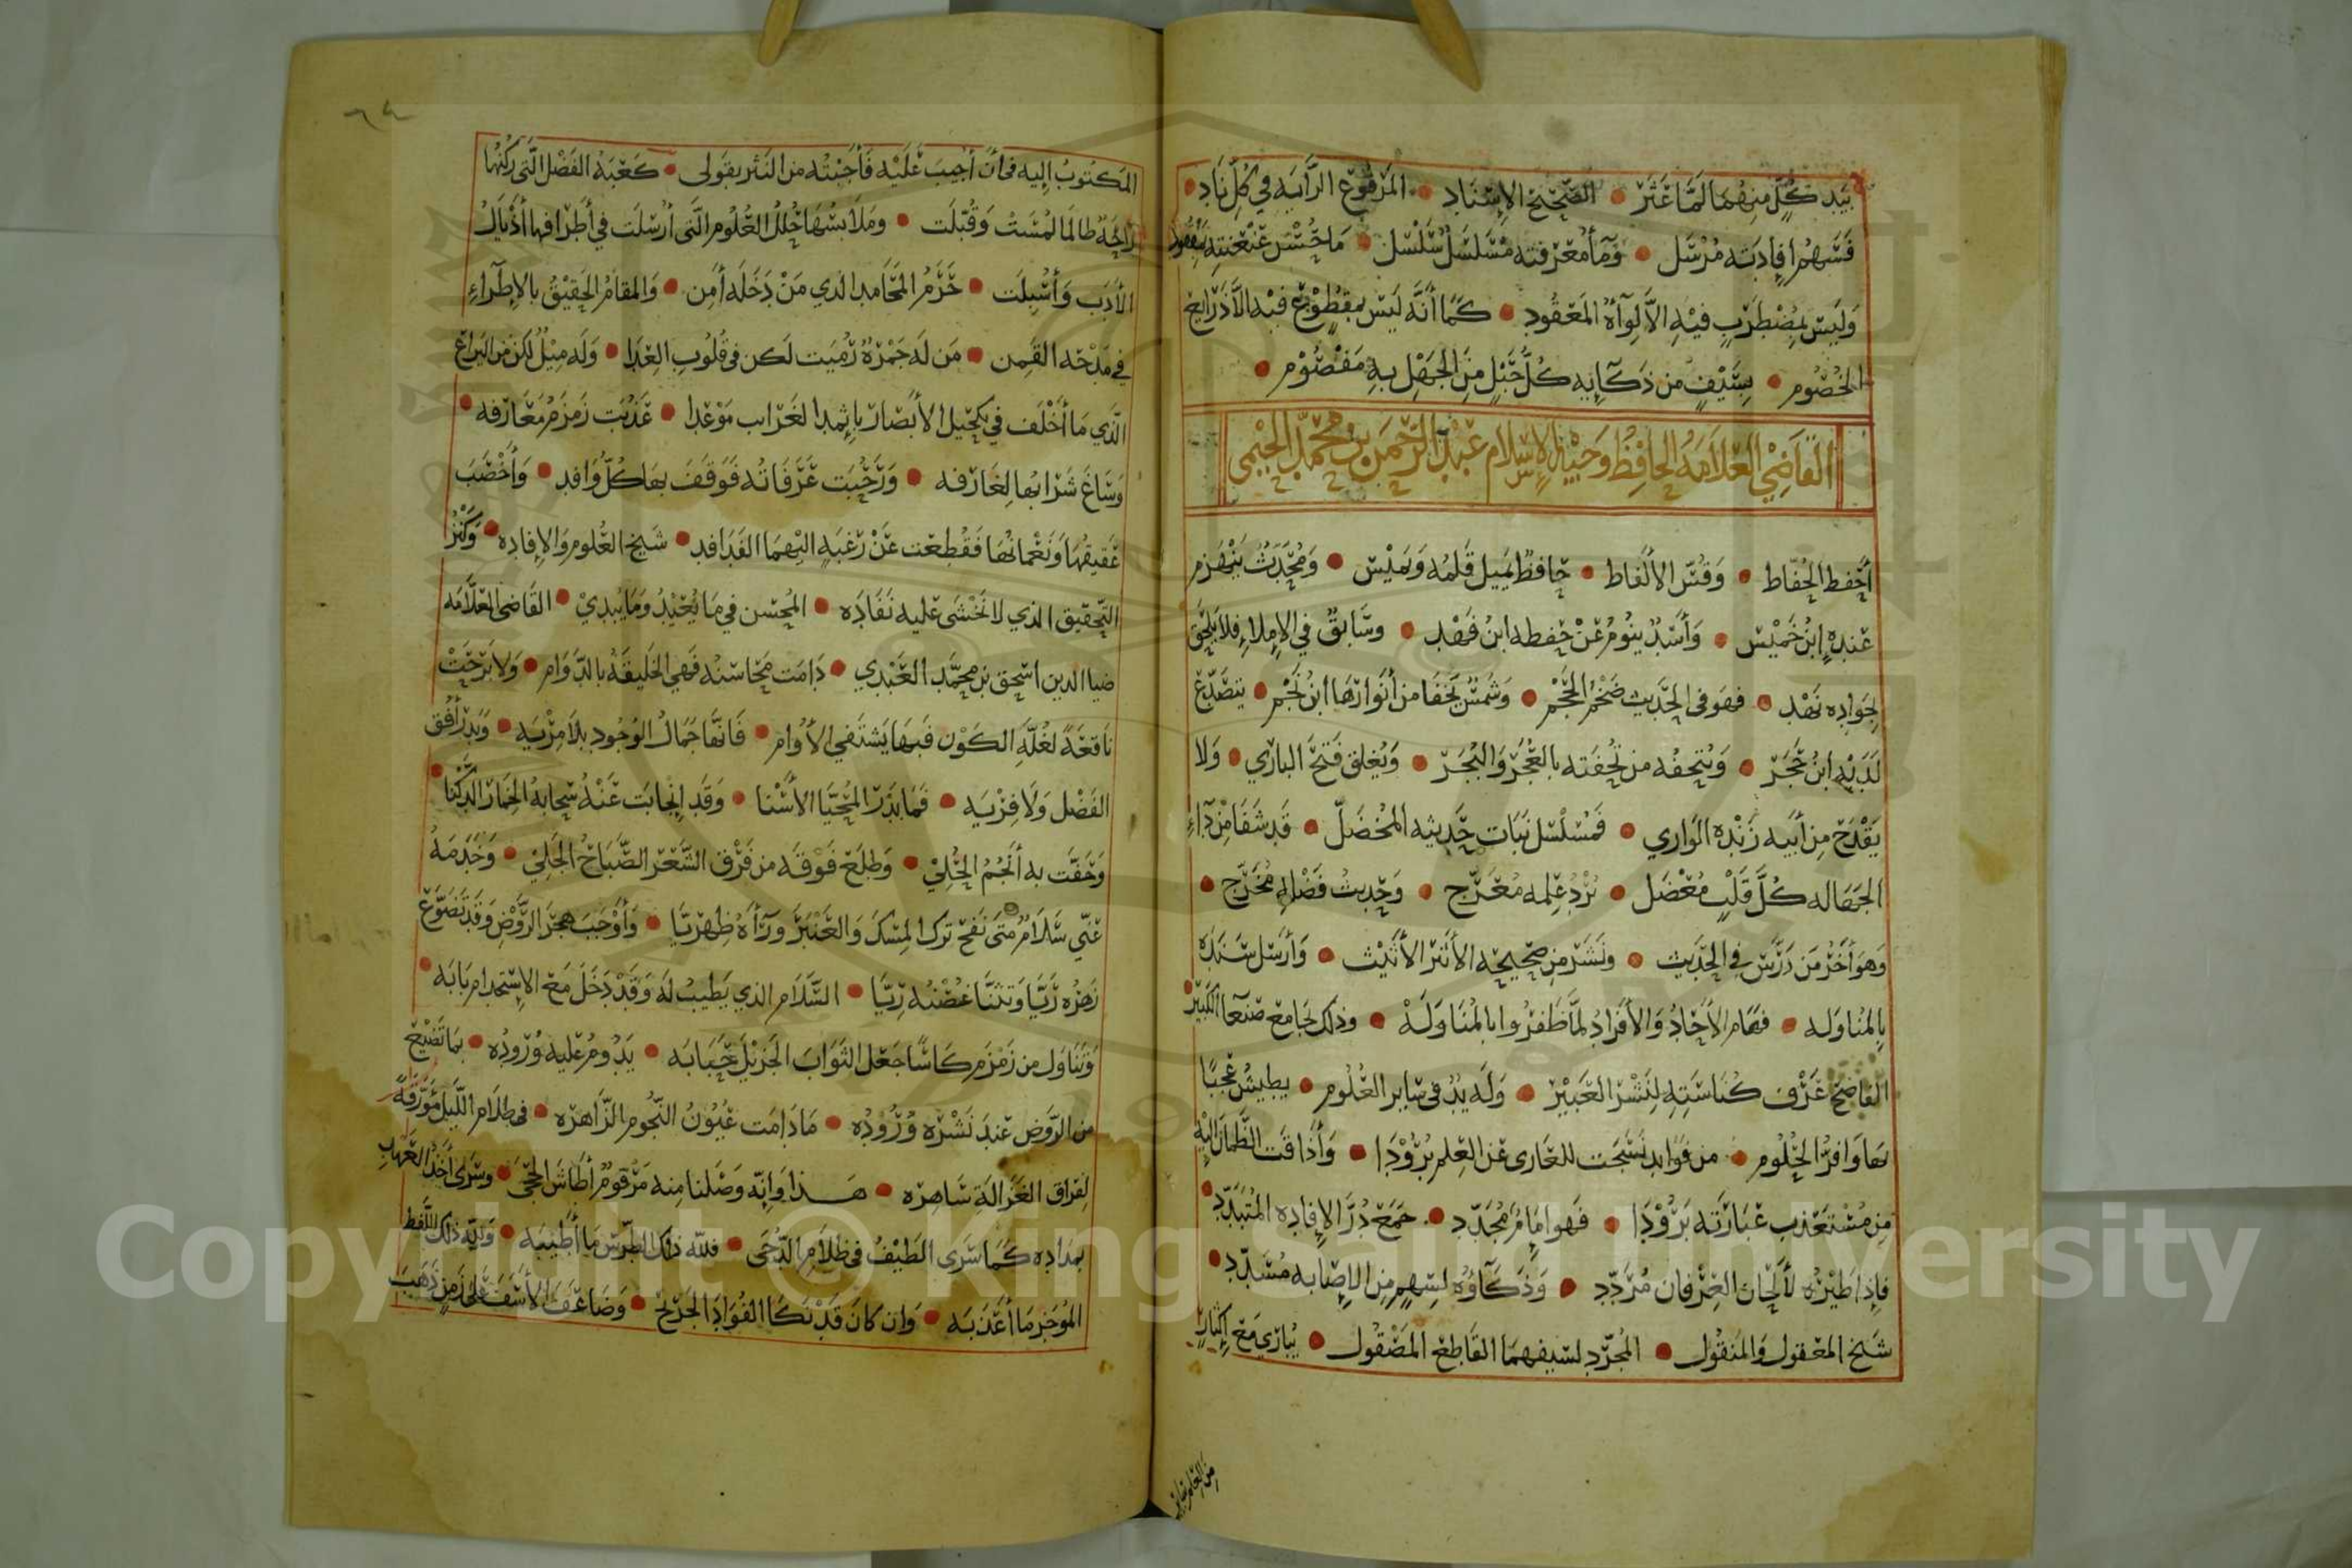 بَيَد كُلٍّ منهُمَا لَمَّا عَثَرْ • الصَّحِيْحِ الإِسْنَادِ • المَرفُوْعِ الرَّايَه فِي كُلِّ نَادِ •
فَسَهمُ إِفادَتِه مُرْسَل • وَمَآءُ مَعْرفته مُسَلسَلُ سُلْسَل • مَا حُسْن عَنْعَنتِه بِمَفقُود
وَلَيسَ بِمضْطرَبٍ فيْهِ الاَّ لِوآؤُه المَعْقُود • كَمَا أنَّه لَيْسَ بمَقطُوْعٍ فيْه الاَّ ذَرايعُ
الخُصُوم • بسَيْفٍ من ذكَآئِه كُلُّ حَبْلٍ مِنَ الجَهْلِ بهِ مَفْصُوْم •
القَاضِي العَلاَّمَهُ الحَافِظُ وَجيْهُ الإسْلام عَبْدُ الرَّحْمَن بنُ مُحَمَّدٍ الحَيْمِي
أحْفظ الحُفّاظ • وَقُسّ الأَلفاظ • حَافظٌ يَميل قَلمُه وَيمَيْسْ • وَمُحَدِّثٌ يَنْهَزم
عَندهُ ابنُ خَمِيْسْ • وَأسَدٌ ينوُمُ عَنْ حفظه ابنُ فَهْد • وسَابقٌ في الإملاءِ فلاَ يلحَق
لِجَوادِه نَهْد • فهوَ في الحَديث ضَخْمُ الحَجْم • وَشَمْسٌ يَخفَا من أنوَارهَا ابنُ نَجْم • يتصَدَّعُ
لدَيْهِ ابنُ حَجَرْ • وَيُتحِفُه من تُحْفَته بالعُجَرْ وَالبُجَرْ • وَيُغلق فَتحُ البارِي • وَلا
يَقْدَح مِن أبيه زَنْدهُ الوَاري • فمُسَلسَل نبَات حَديثه المُخضَلّ • قَد شفَا مِن دَآءِ
الجهَاله كُلَّ قَلْبٍ مُعْضَل • بُرْدُ عِلمه مُعَرَّج • وَحَديثُ فَضْلهِ مُخَرَّج •
وَهو أخَرُ مَن دَرَّسَ فِي الحَدِيث • ونَشَر مِن صَحِيحِه الأثَر الأثيْث • وَأرسَل سَنَدَه
بِالمُناوَله • فهَام الأحَادُ وَالأفرَادُ لمَّا ظَفرُوا بالمُناوَلَهْ • وذلك بجَامع صَنعَآ الكَبِيْر
الفَاضِح عَرْف كنَاسَتِه لِنَشْر العَبِيْر • وَلَه يَدٌ في سَاير العُلُوم • يطيشُ عجَبًا
بهَا وَافرُ الحُلوُم • من فوَايد نسَجَت للعَارى عَن العِلم بُرُوْدَا • وَأذَاقت الظَمآن اليْهِ
من مُسْتَعْذب عبَارَته بَرُوْدَا • فَهو إمَامٌ مُجَدِّد • جَمَع دُرَّ الإفَادِه المُتبَدِّد •
فإذا طيْرُه لألحَان العِرْفان مُردِّد • وَذكَآؤُه لسَهم منَ الإصَابه مُسَدِّد •
شَيخ المَعْقول وَالمنقُول • المُجَرّد لسَيفهمَا القَاطِع المَصْقُول • يُبَارِي مَعَ إكثَارٍ
من العلم
٦٤
المَكتوبُ إليه في أن أُجيبَ عَلَيْه فَأجَبْتُه من النَثر بقَولى • كَعْبَة الفَضْل الَّتى رُكنُهَا
رَاحَةٌ طالَمَا لُمسَتْ وَقُبّلَت • وَملاَبسُهَا حُلَلُ العُلُوم الَّتى أُرْسِلَت في أطْرافهَا أذيَالُ
الأدَب وَأسْبِلَت • حَرَمُ المَحَامِد الذي مَنْ دَخَلَه أَمِن • وَالمقَامُ الحَقِيْقُ بالإطْرَآءِ
في مَدْحَه القَمِن • مَن لَه جَمْرَةٌ رُمِيَت لَكن في قُلُوبِ العِدَا • وَلَه مِيْلٌ لكن من اليَرَاع
الَّذي مَا أخْلَف في تكحِيل الأبْصَار بإثمِد الغَرَايب مَوْعَدا • عَذُبَت زَمزَمُ مَعَارفه •
وَسَاغَ شَرَابُهَا لِغَارفه • وَرَحُبَت عَرَفَاتُه فَوقَفَ بهَا كُلُّ وَافد • وَأخْصَبَ
عَقيقُهَا وَنَعْمَانُها فقُطِعَت عَنْ رَغبَةٍ اليْهمَا الفَدَافد • شَيخ العُلوم وَالإفادِه • وَكنْز
التَّحقيق الذي لا نَخْشَى عَليه نَفَادَه • المُحْسن في مَا يُعِيْدُ وَمَا يُبديْ • القَاضى العَلاَّمَه
ضيا الدين اسْحق بن مُحمَّد العَبْدِي • دَامَت مَحَاسنُه فَهي الخَليقَةُ بالدَّوَام • وَلاَ بَرحَتْ
نَاقعَةً لغُلَّةِ الكَوْن فَبهَا يَشتَفي الأُوَام • فَانهَا جَمَالُ الوُجُود بلاَ مِرْيَه • وَبَدْرُ أُفُق
الفَضْل وَلاَ فِرْيَه • فَمَا بَدْرُ المُحيَّا الأسْنَا • وَقَد انجَابَت عَنْهُ سَحَابَةُ الخِمَار الدَّكْنَا •
وَحَفَّت به أنجُمُ الحُلِيْ • وَطلَعَ فَوْقَه من فَرْق الشَّعَر الصَّبَاحُ الجَلِيْ • وَخَدَمَهُ
عَنّي سَلاَمٌ مَتى نَفَحَ ترَك المِسْكَ وَالعَنْبَرَ ورَآءَهُ ظِهْريَّا • وَأوْجَبَ هجَرَ الرَّوْضِ وَقَد تَضوَّعَ
زَهرُه رَيَّا وَتثنَّا غصْنُه رِيَّا • السَّلاَم الذي يَطيبُ لَه وَقَدْ دَخَلَ مَعَ الإسْتِخدام بَابَه •
وَتنَاوَل من زَمْزَم كَاسًا جَعَل الثَوَابَ الجَزيْلَ حَبَابَه • يَدُومُ عَليه وُرُودُه • بمَا تضِيْعُ
من الرَّوض عَندَ نَشْرِه وُرُودُه • مَا دَامَت عُيُونُ النُّجُوم الزَّاهرَه • في ظلاَم اللَّيل مُؤَرَّقَةً
لفِرَاق الغَزَالَة سَاهِرَه • هَذا وَإنّه وَصَلنا منه مَرْقومٌ أطَاشَ الحِجَى • وسَرَى
بمدَادِه كَمَا سَرَى الطَيْفُ في ظَلاَم الدُّجَى • فللّه ذلك الطِّرْس مَا أطْيَبَه • وَللّه ذلك اللَّفظ
المُوجَز مَا أعْذَبَه • وَان كَانَ قَدْ نَكَا الفُؤَادَ الجَرْيح • وَضَاعَفَ الأسَف عَلى زَمَنٍ ذَهَبَ
Copyright © King Saud University